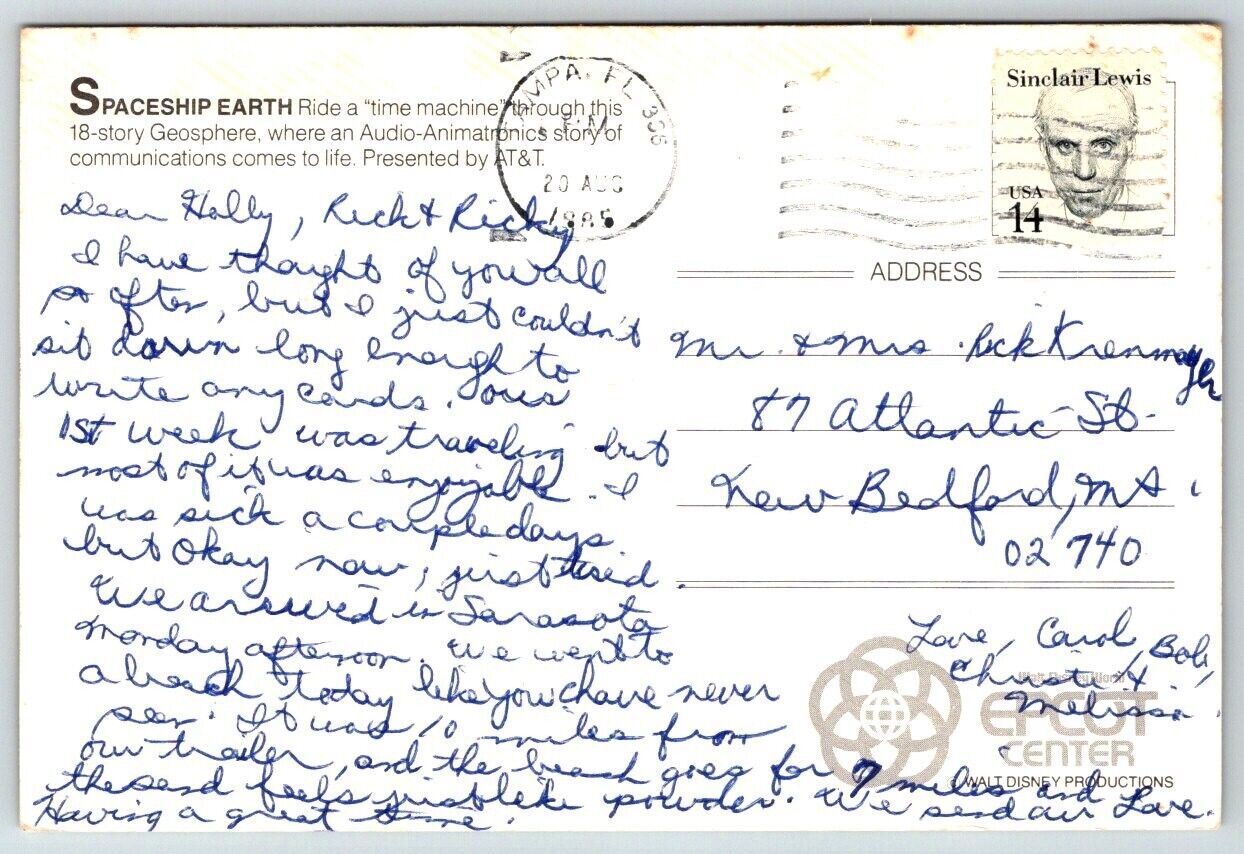 SPACESHIP EARTH Ride a "time machine" through this
18-story Geosphere, where an Audio-Animatronics story of
communications comes to life. Presented by AT&T.
TAMPA, FL 336
PM
20 AUG
1985
Sinclair Lewis
USA
14
Dear Holly, Rick & Ricky
I have thought of you all
so often, but I just couldn't
sit down long enough to
write any cards. Our
1st week was traveling but
most of it was enjoyable. I
was sick a couple days
but Okay now, just tired.
We arrived in Sarasota
Monday afternoon. We went to
a beach today like you have never
seen. It was 10 miles from
our trailer, and the beach goes for 7 miles and
the sand feels just like powder. We send our Love.
Having a great time.
ADDRESS
Mr. & Mrs. Rick
87 Atlantic St.
New Bedford, MA
02740
Love, Carol, Bob,
Christa &
Melissa
Walt Disney World
EPCOT
CENTER
© WALT DISNEY PRODUCTIONS